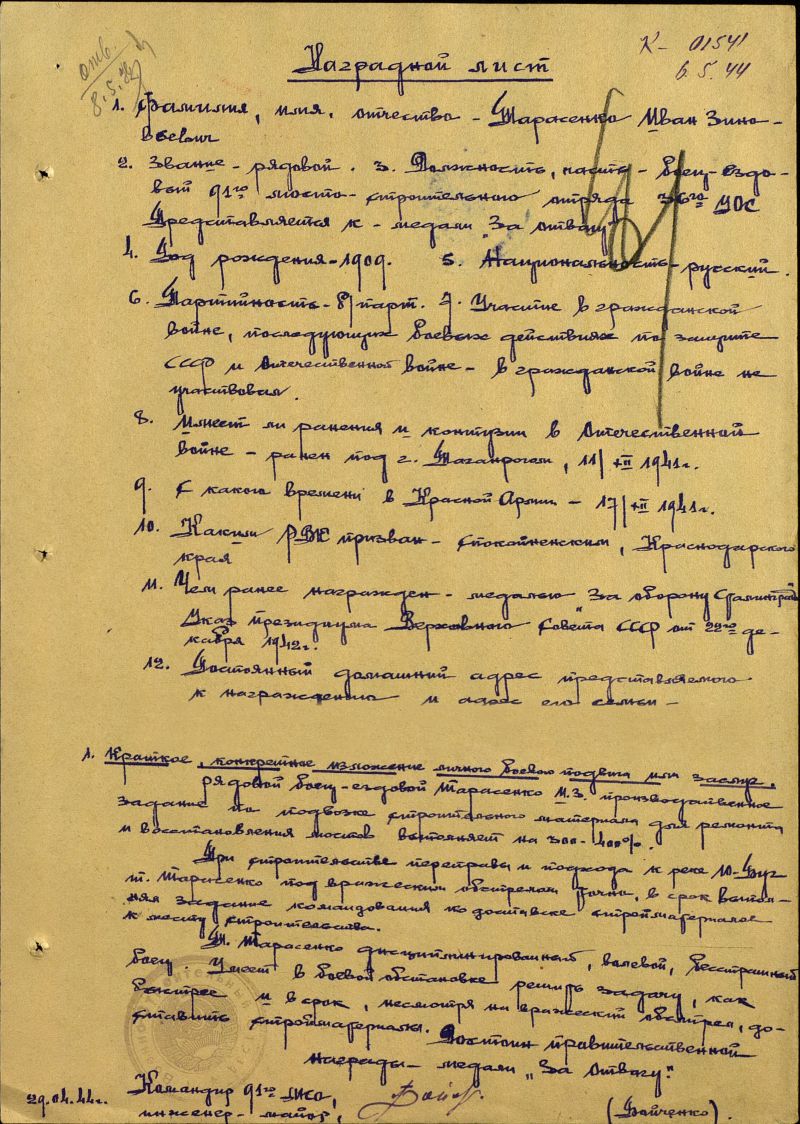 отв.
8.5.44
К- 01541
6.5.44
Наградной лист
1. Фамилия, имя, отчество - Тарасенко Иван Зино-
вьевич
2. Звание - рядовой. 3. Должность, часть - боец-ездо-
вый 91го мосто-строительного отряда 36го УОС
Представляется к - медали „За отвагу"
4. Год рождения - 1909. 5. Национальность - русский.
6. Партийность - б/парт. 7. Участие в гражданской
войне, последующих боевых действиях по защите
СССР и отечественной войне - в гражданской войне не
участвовал.
8. Имеет ли ранения и контузии в отечественной
войне - ранен под г. Таганрогом, 11/XII 1941г.
9. С какого времени в Красной Армии - 17/XII 1941г.
10. Каким РВК призван - Спокойненским, Краснодарского
края
11. Чем ранее награжден - медалью за оборону Сталинграда
Указ президиума Верховного Совета СССР от 22го де-
кабря 1942г.
12. Постоянный домашний адрес представляемого
к награждению и адрес его семьи -
1. Краткое, конкретное изложение личного боевого подвига или заслуг.
рядовой боец-ездовой Тарасенко И.З. производственное
задание по подвозке строительного материала для ремонта
и восстановления мостов выполняет на 300-400%.
При строительстве переправы и подхода к реке Ю-Буг
т. Тарасенко под вражеским обстрелом точно, в срок выпол-
нял задание командования по доставке стройматериалов
к месту строительства.
Т. Тарасенко дисциплинированный, волевой, бесстрашный
боец. Умеет в боевой обстановке решить задачу, как
быстрее и в срок, несмотря на вражеский обстрел, до-
ставить стройматериалы. Достоин правительственной
награды - медали „За отвагу".
29.04.44г. Командир 91го МСО
инженер-майор, (Бойченко).